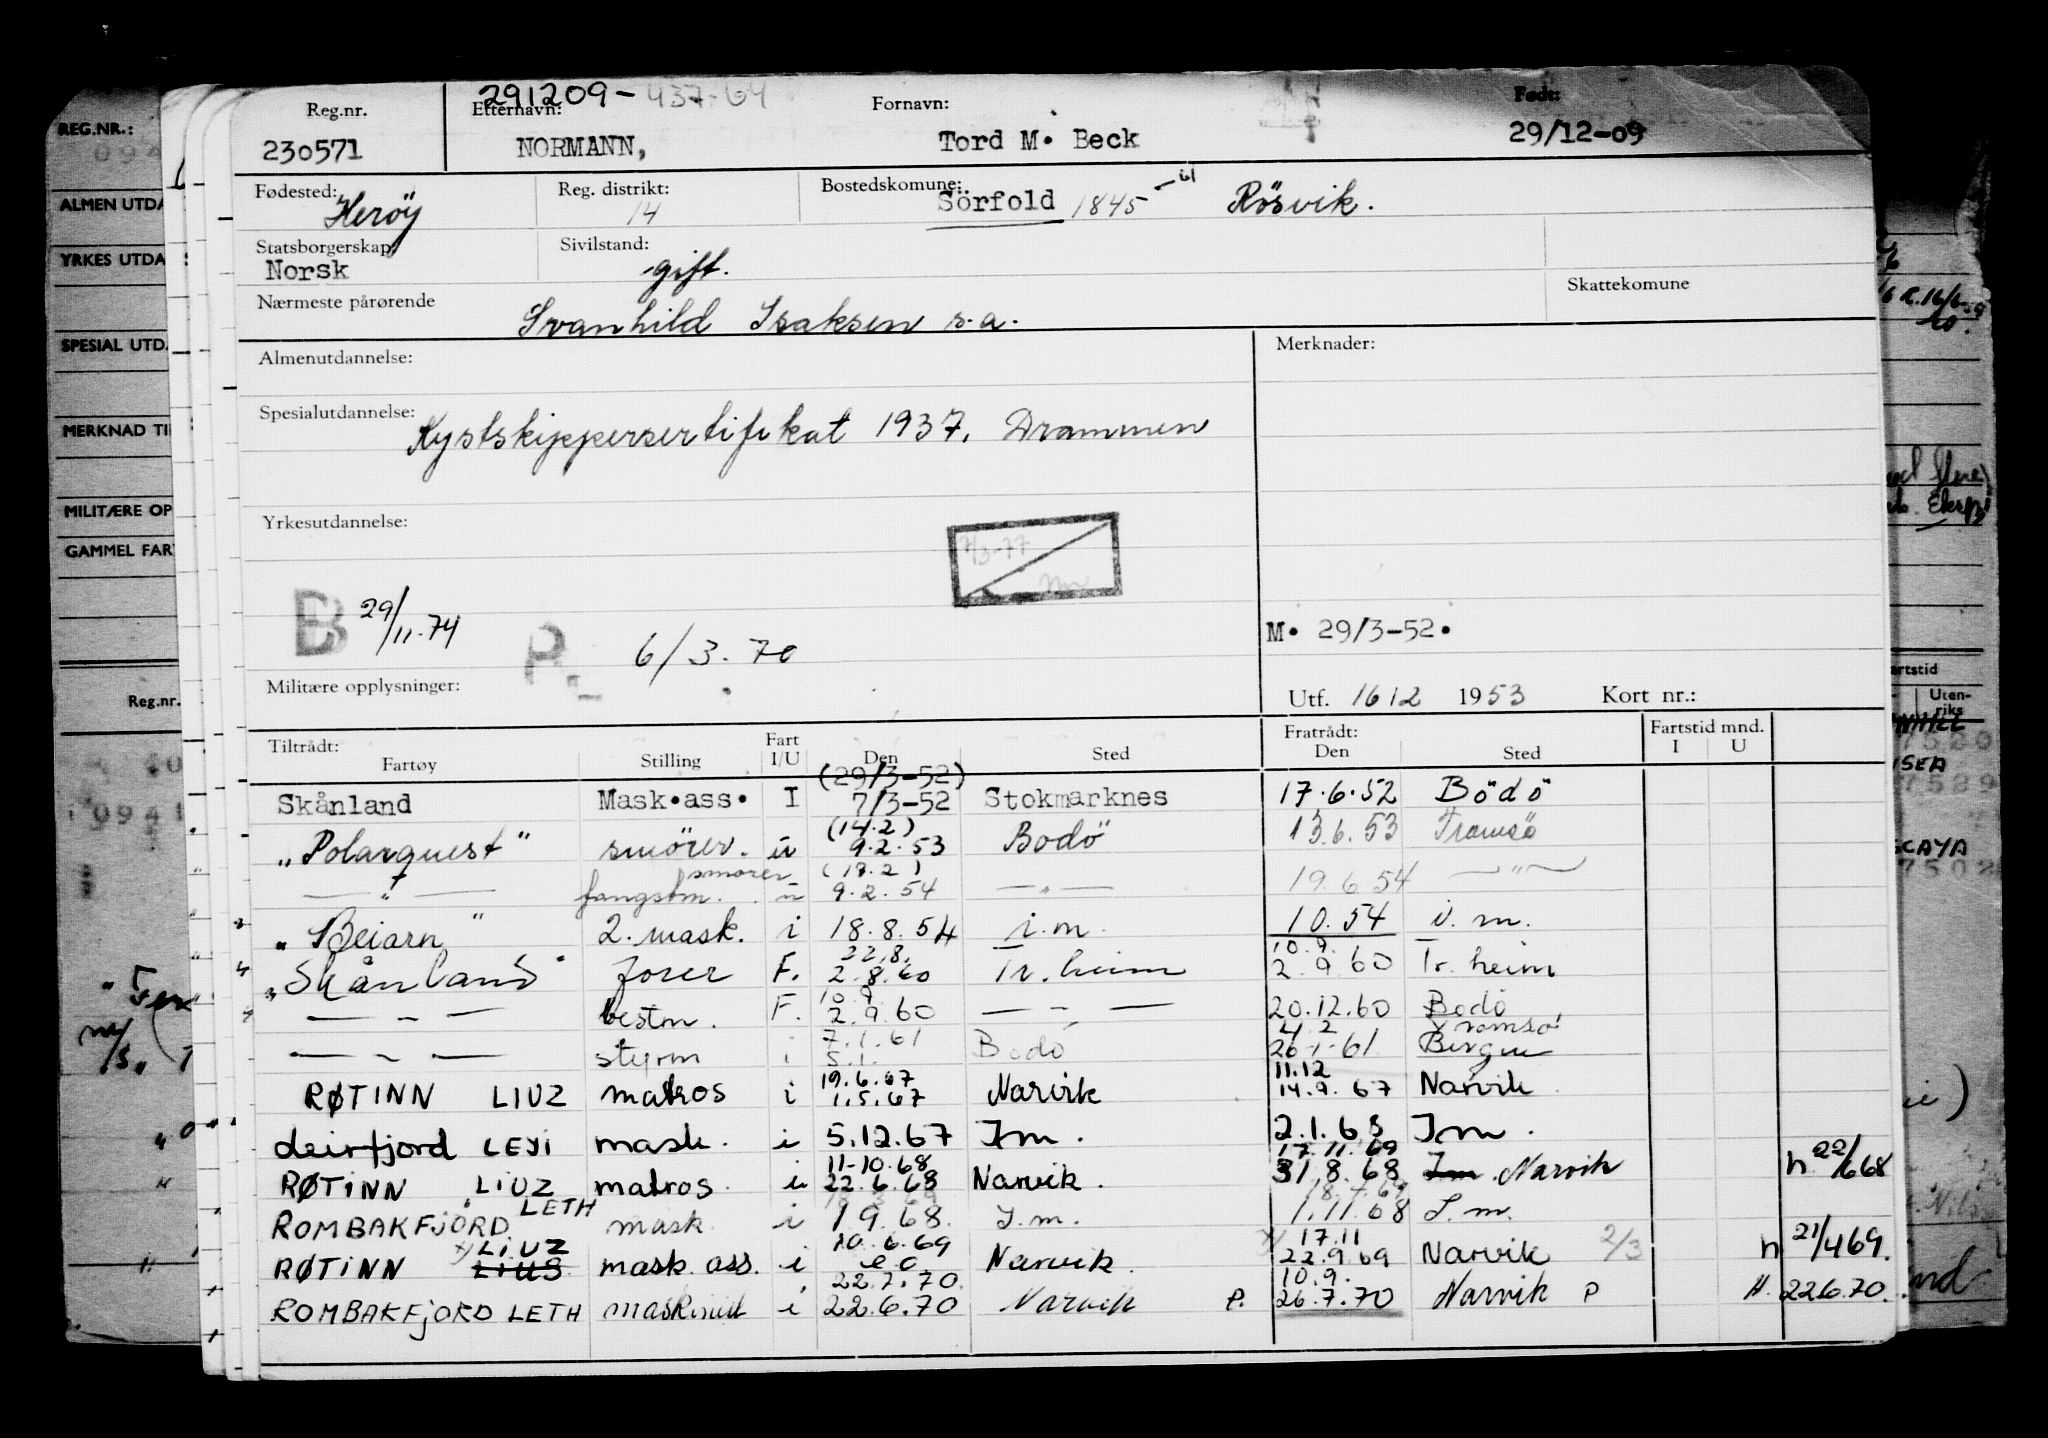 291209-437-64
Reg.nr. Etternavn: Fornavn: Født:
230571 NORMANN, Tord M. Beck 29/12-09
Fødested: Reg. distrikt: Bostedskomune:
Herøy 14 Sörfold 1845 Rösvik.
Statsborgerskap Sivilstand:
Norsk gift.
Nærmeste pårørende Skattekomune
Svanhild Isaksen s.a.
Almenutdannelse: Merknader:
Spesialutdannelse:
Kystskippersertifikat 1937. Drammen
Yrkesutdannelse:
7/3-77
B 29/11.74
P. 6/3.70
M. 29/3-52.
Militære opplysninger: Utf. 16 12 1953 Kort nr.:
Tiltrådt: Fratrådt: Fartstid mnd.
Fartøy Stilling Fart I/U Den Sted Den Sted I U
(29/3-52)
Skånland Mask.ass. I 7/3-52 Stokmarknes 17.6.52 Bödö
(14.2)
"Polarquest" smörer. u 9.2.53 Bodö 13.6.53 Tromsö
smører (18.2)
— " — fangstm. u 9.2.54 — " — 19.6.54 — " —
"Beiarn" 2. mask. i 18.8.54 i.m. 10.54 i.m.
22.8. 10.9.
"Skånland" fører F. 2.8.60 Tr.heim 2.9.60 Tr.heim
10.9
— " — bestm. F. 2.9.60 — " — 20.12.60 Bodö
7.1.61 4.2 Tromsö
— " — styrm i 5.1. Bodö 26-1-61 Bergen
19.6.67 11.12
RØTINN LIUZ matros i 1.5.67 Narvik 14.9.67 Narvik
Leirfjord LEYI mask. i 5.12.67 Im. 2.1.68 Im.
11-10.68 17.11.69
RØTINN LIUZ matros. i 22.6.68 Narvik. 31.8.68 Im. Narvik n 22/668
LETH 18.7.69
ROMBAKFJORD mask. i 1.9.68. I.m. 1.11.68 I.m.
LIUZ 10.6.69 17.11
RØTINN LIUS mask. ass. i Narvik. 22.9.69 Narvik 2/3 n 21/469.
22.7.70. 10.9.
ROMBAKFJORD LETH maskinist i 22.6.70 Narvik P. 26.7.70 Narvik P H. 226.70.
REG.NR.:
ALMEN UTDA
YRKES UTDA
SPESIAL UTDA
MERKNAD TI
MILITÆRE OP
GAMMEL FAR
Reg.nr.
artstid
Uten-
riks